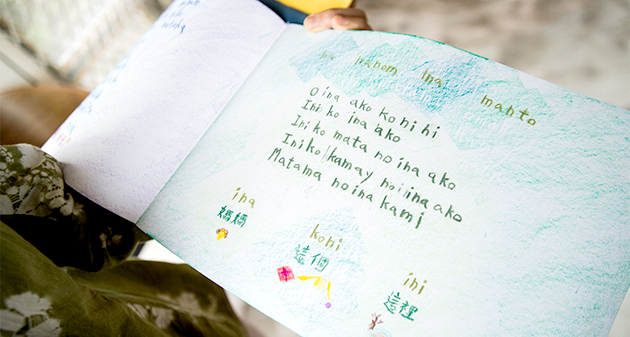 nanom ina manto
O ina ako konihi
Ini ko ina ako
Ini ko mata no ina ako
Ini ko kamay no ina ako
Matama no ina kami
ina
媽媽
koni
這個
ini
這裡